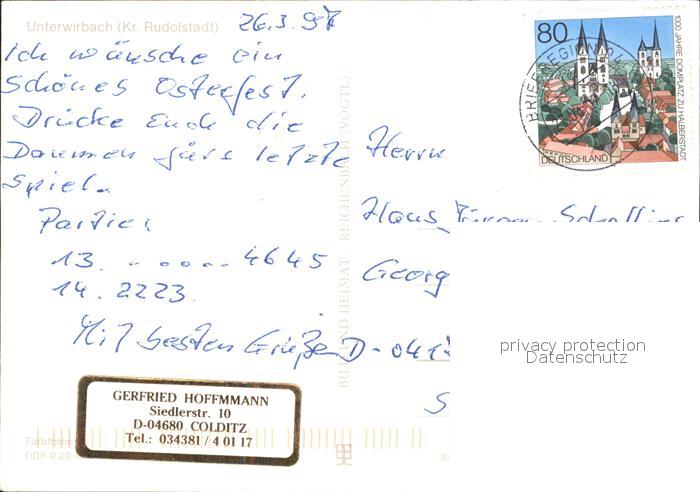 Unterwirbach (Kr. Rudolstadt)
26.3.97
Ich wünsche ein
Schönes Osterfest.
Drücke Euch die
Daumen fürs letzte
Spiel.
Partie:
13. ..... 4645
14. 2223
Mit besten Grüßen
GERFRIED HOFFMMANN
Siedlerstr. 10
D-04680 COLDITZ
Tel.: 034381 / 4 01 17
Farbfoto:
DDR 0,20
BILD UND HEIMAT REICHENBACH (VOGTL)
80
DEUTSCHLAND
1000 JAHRE DOMPLATZ ZU HALBERSTADT
BRIEFREGION
Herrn
Hans Jürgen
Georg
D-041
S
privacy protection
Datenschutz